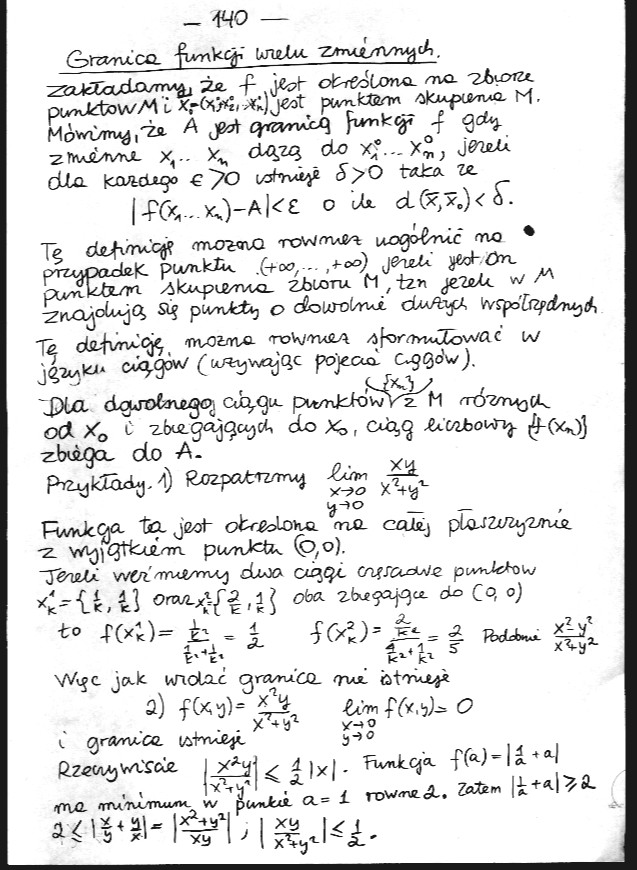 – 140 —
Granica funkcji wielu zmiennych.
Zakładamy, że f jest określona na zbiorze
punktow M i x̄₀=(x₁⁰,x₂⁰,..xₙ⁰) jest punktem skupienia M.
Mówimy, że A jest granicą funkcji f gdy
zmienne x₁...xₙ dążą do x₁⁰...xₙ⁰, jezeli
dla kazdego ε>0 istnieje δ>0 taka ze
|f(x₁...xₙ)-A|<ε o ile d(x̄,x̄₀)<δ.
Tę definicję mozna rowniez uogólnić na
przypadek punktu (+∞,...,+∞) jezeli jest on
punktem skupienia zbioru M, tzn jezeli w M
znajdują się punkty o dowolnie dużych współrzędnych.
Tę definicję mozna rowniez sformułować w
języku ciągów (używając pojęcia ciągów).
{xₙ}
Dla dowolnego ciągu punktów z M róznych
od x₀ i zbiegających do x₀, ciąg liczbowy {f(xₙ)}
zbiega do A.
Przykłady. 1) Rozpatrzmy lim x→0 y→0 xy/(x²+y²)
Funkcja ta jest określona na całej płaszczyznie
z wyjątkiem punktu (0,0).
Jezeli weźmiemy dwa ciągi częsciowe punktow
xₖ¹={1/k,1/k} oraz xₖ²={2/k,1/k} oba zbiegające do (0,0)
to f(xₖ¹)=(1/k²)/(1/k²+1/k²)=1/2 f(xₖ²)=(2/k²)/(4/k²+1/k²)=2/5 Podobnie (x²-y²)/(x²+y²)
Więc jak widać granica nie istnieje
2) f(x,y)=x²y/(x²+y²) lim x→0 y→0 f(x,y)=0
i granica istnieje
Rzeczywiscie |x²y/(x²+y²)| ≤ 1/2|x|. Funkcja f(a)=|1/a+a|
ma minimum w punkcie a=1 rowne 2. Zatem |1/a+a|≥2
2≤|x/y+y/x|=|(x²+y²)/xy|; |xy/(x²+y²)|≤1/2.